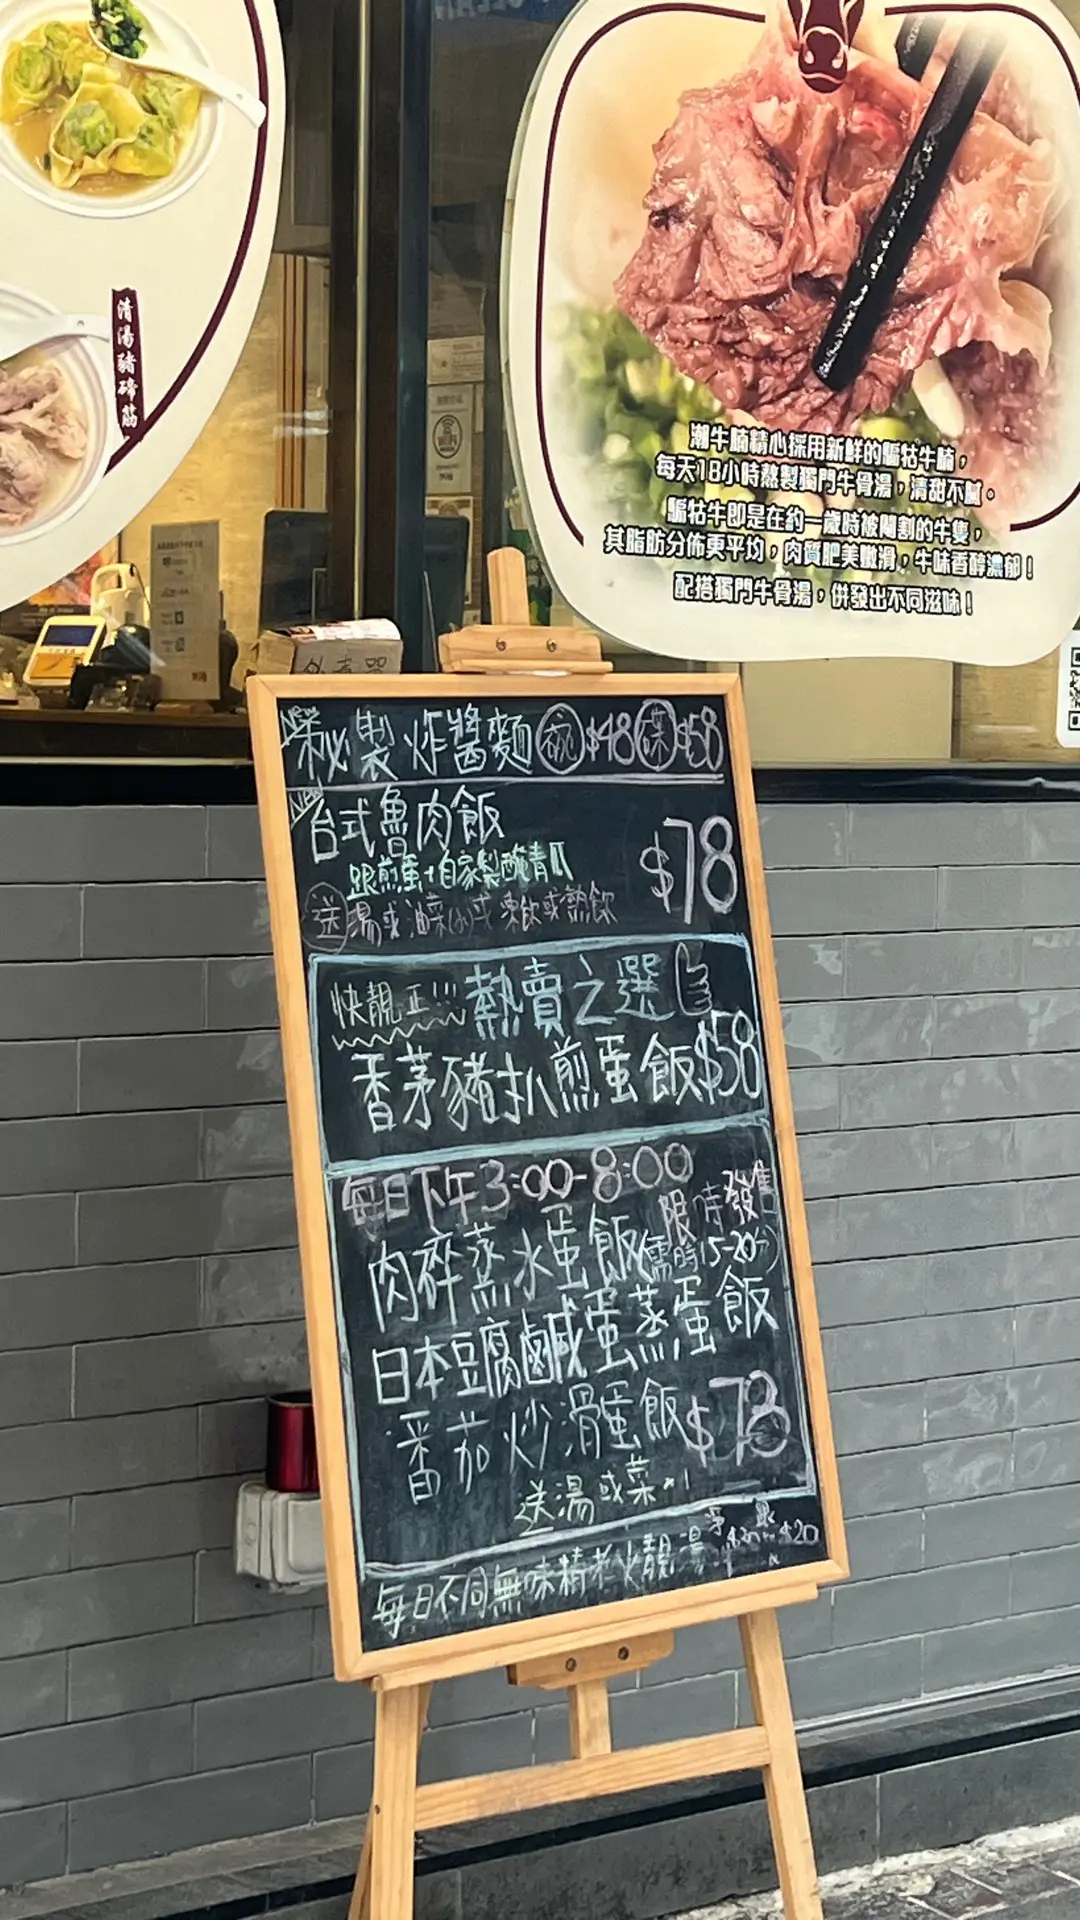 清湯豬蹄筋
潮牛腩精心採用新鮮的騸牯牛腩，
每天18小時熬製獨門牛骨湯，清甜不膩。
騸牯牛即是在約一歲時被閹割的牛隻，
其脂肪分佈更平均，肉質肥美嫩滑，牛味香醇濃郁！
配搭獨門牛骨湯，併發出不同滋味！
NEW 秘製炸醬麵 碗 $48 碟 $58
NEW 台式魯肉飯
跟煎蛋+自家製醃青瓜
$78
送 湯或油菜(小)或凍飲或熱飲
快靚正!!! 熱賣之選
香茅豬扒煎蛋飯 $58
每日下午3:00-8:00
限時發售
肉碎蒸水蛋飯(需時15-20分)
日本豆腐鹹蛋蒸蛋飯
番茄炒滑蛋飯 $78
送湯或菜x1
每日不同無味精老火靚湯
$20